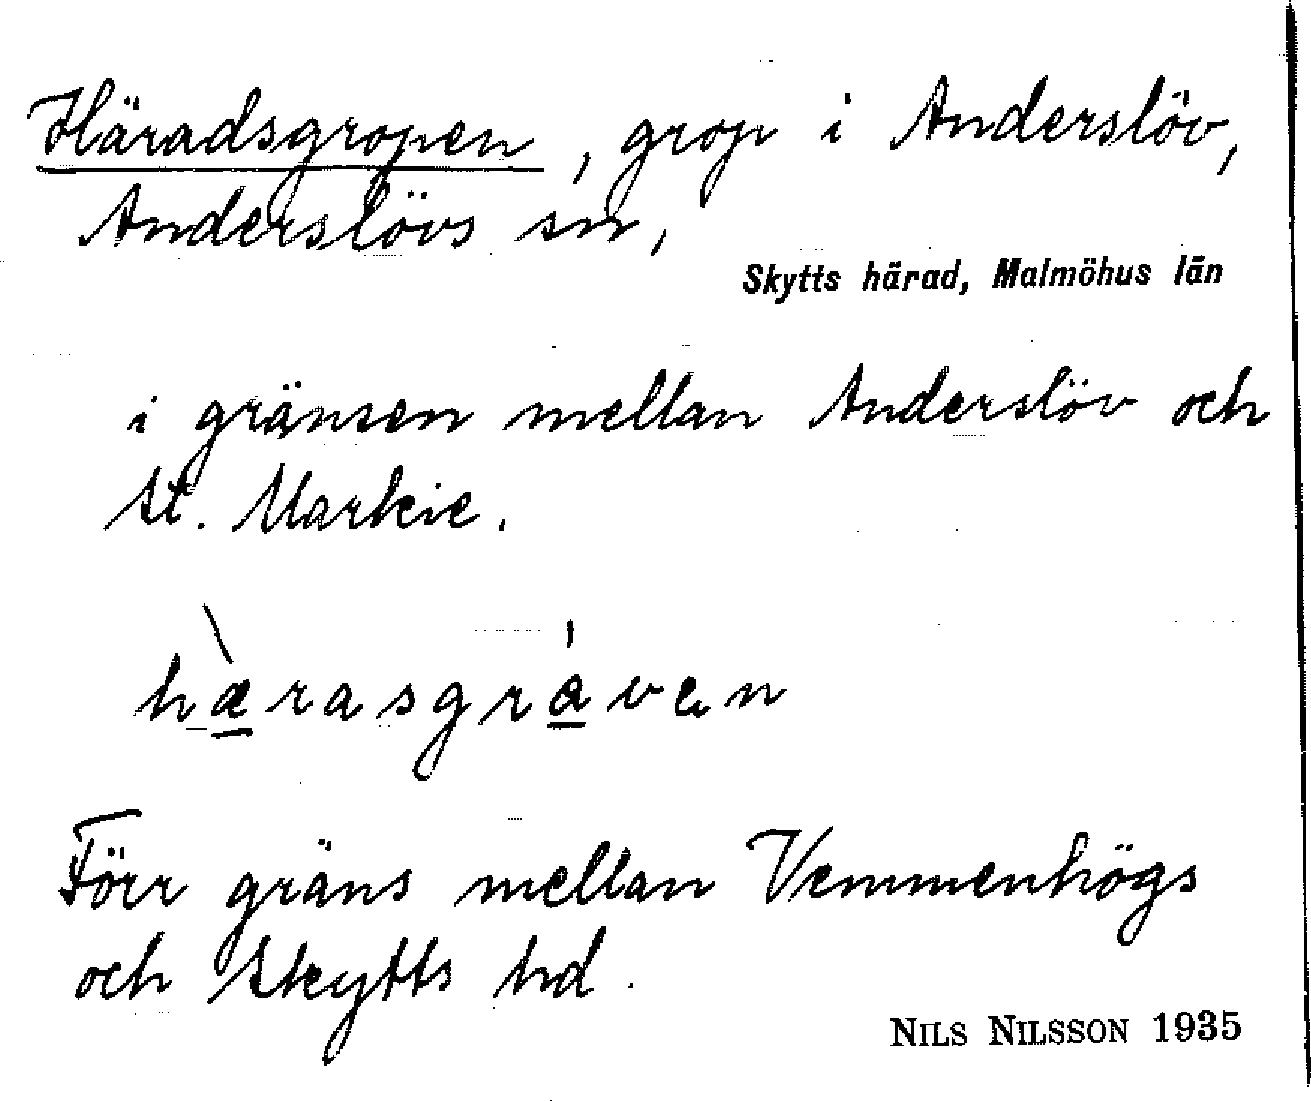 Häradsgropen, grop i Anderslöv,
Anderslövs sn,
Skytts härad, Malmöhus län
i gränsen mellan Anderslöv och
St. Markie.
hæ̀rasgráven
Förr gräns mellan Vemmenhögs
och Skytts hd.
NILS NILSSON 1935